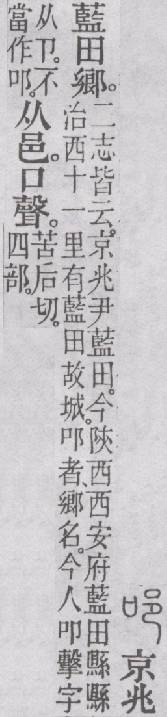 京兆
藍田鄉。二志皆云。京兆尹藍田。今陝西西安府藍田縣縣
治西十一里有藍田故城。叩者、鄉名。今人叩擊字
从卩。不
當作叩。从邑。口聲。苦后切。
四部。